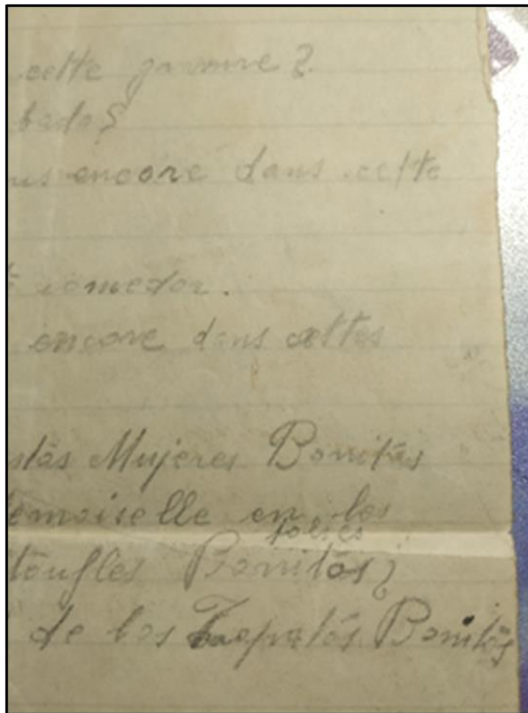 cette gramme?
bada?
us encore dans cette
comedor.
encore dans cettes
stás Mujeres Bonitás
emoiselle en los
jolies
toufles Bonitás?
de los Zapatós Bonitás